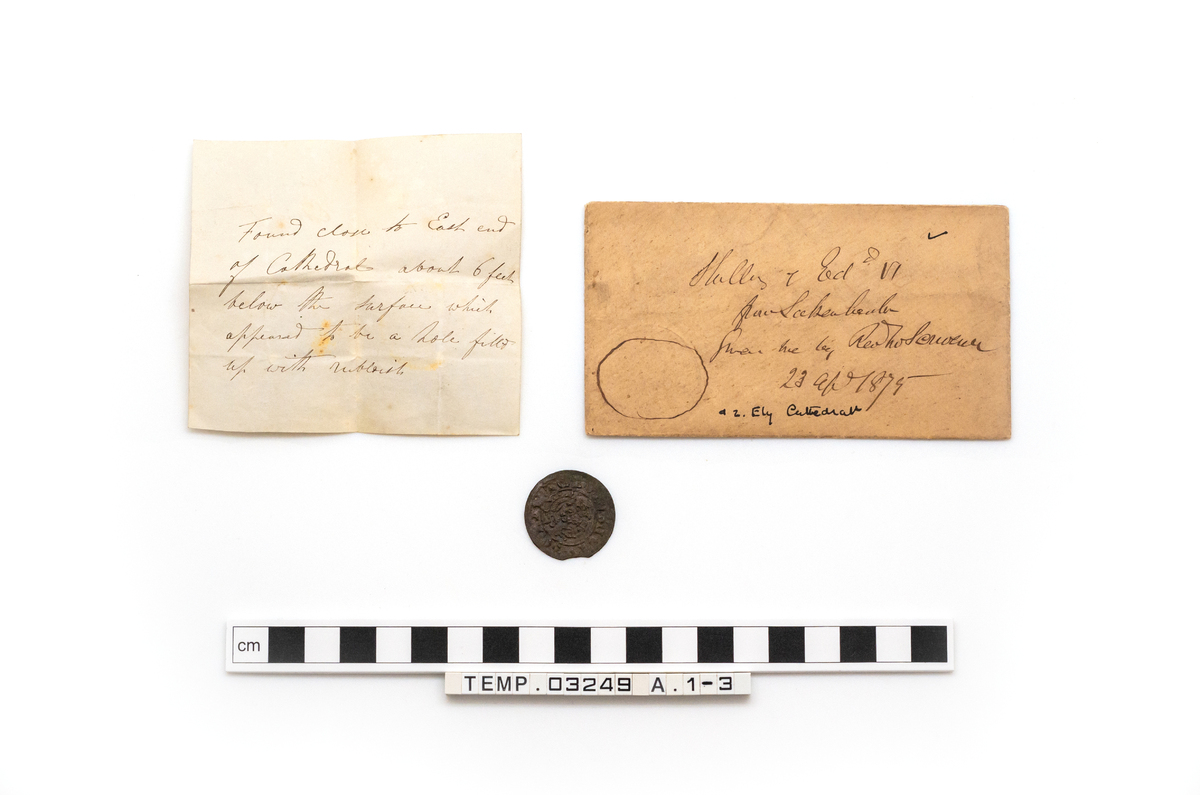 Found close to East end
of Cathedral about 6 feet
below the surface which
appeared to be a hole filled
up with rubbish
Shilling of Edd VI
from
Given me by Revd
23 Apl 1875
2. Ely Cathedral
cm
TEMP.03249 A.1-3